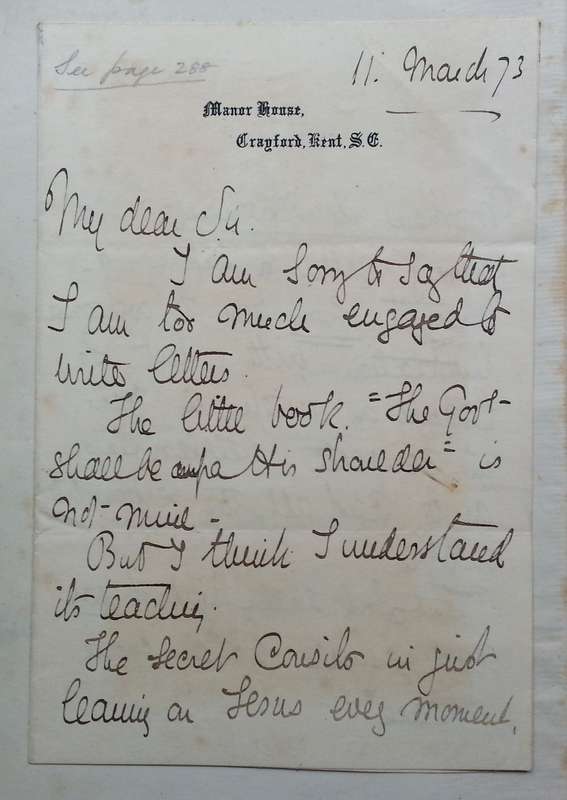 See page 288
11. March 73
Manor House,
Crayford, Kent, S.E.
My dear Sir.
I am sorry to say that
I am too much engaged to
write letters.
The little book. "The Govt-
shall be upon His shoulder" is
not mine -
But I think I understand
its teaching.
The secret Consists in just
leaning on Jesus every moment.